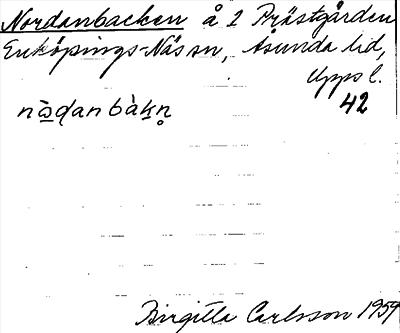 Nordanbacken å 2 Prästgården
Enköpings-Näs sn, Åsunda hd,
Upps l.
42
nɷ̀ɖanbàkn̥
Birgitta Carlsson 1959